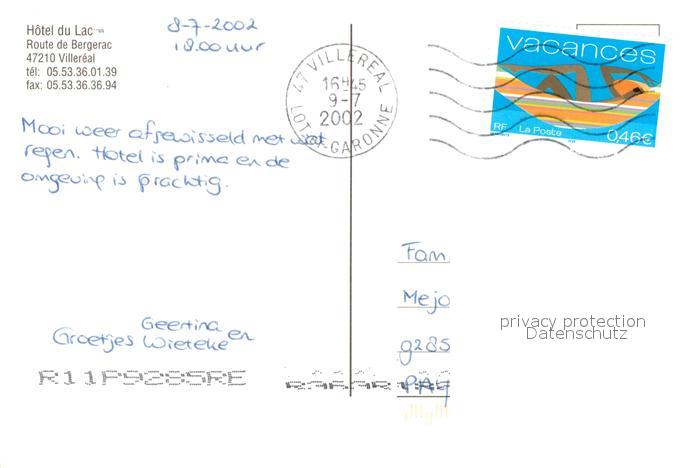 Hôtel du Lac
Route de Bergerac
47210 Villeréal
tél: 05.53.36.01.39
fax: 05.53.36.36.94
8-7-2002
18.00 uur
Mooi weer afgewisseld met wat
regen. Hotel is prima en de
omgeving is prachtig.
Geertina en
Groetjes Wieteke
R11P9285RE
47 VILLEREAL
16H45
9-7
2002
LOT-GARONNE
vacances
RF La Poste 0,46€
Fam
Mejo
9285
PA
privacy protection
Datenschutz